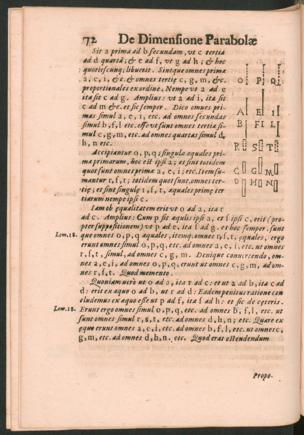 72 De Dimensione Parabolæ
Sit a prima ad b secundam, vt c tertia
ad d quartã; & e ad f, vt g ad h; & hoc
quotiescunq; libuerit. Sintque omnes primæ
a, c, i, &c. & omnes tertiæ c, g, m, &c.
proportionales ex ordine. Nempe vt a ad e
ita sit c ad g. Amplius: vt e ad i, ita sit
c ad m &c. et sic semper. Dico omnes primas
simul a, e, i, etc. ad omnes secundas
simul b, f, l etc. esse vt sunt omnes tertiæ simul
c, g, m, etc. ad omnes quartas simul d,
h, n etc.
Accipiantur o, p, q singulæ æquales primæ
primarum, hoc est ipsi a; et sint totidem
quot sunt omnes primæ a, e, i; etc. Item sumantur
r, s, t; totidem quot sunt omnes tertiæ;
et sint singulæ r, s, t, æquales primæ tertiarum
nempe ipsi c.
Iam ob æqualitatem erit vt o ad a, ita r
ad c. Amplius: Cum p sit æqualis ipsi a, et s ipsi c, erit (propter
suppositionem) vt p ad e, ita s ad g. et hoc semper. sunt
Lem. 18. que omnes o, p, q æquales, itemq; omnes r, s, t, equales, ergo
erunt omnes simul o, p, q, etc. ad omnes a, e, i, etc. vt omnes
r, s, t, simul, ad omnes c, g, m. Denique conuertendo, omnes
a, e, i, ad omnes o, p, q, erunt vt omnes c, g, m, ad omnes
r, s, t. Quod memento.
Quoniam verò vt o ad a, ita r ad c: et vt a ad b, ita c ad
d: erit ex æquo o ad b, vt r ad d: Eademq; penitus ratione concludemus
ex æquo esse vt p ad f, ita s ad h: et sic de ceteris.
Lem. 18. Erunt ergo omnes simul o, p, q, etc. ad omnes b, f, l, etc. vt
sunt omnes simul r, s, t, etc. ad omnes d, h, n; etc. Quare ex
æquo erunt omnes a, e, i, etc. ad omnes b, f, l, etc. vt omnes c,
g, m, etc. ad omnes d, h, n, etc. Quod erat ostendendum
O P Q
A E I
B F L
R S T
C G M
D H N
Propo-